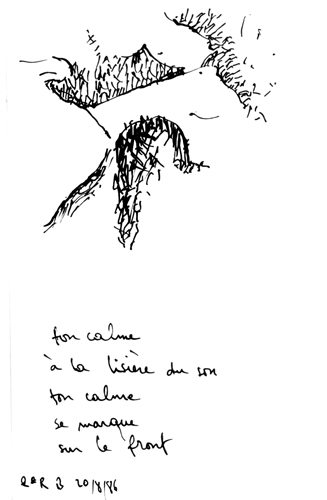 ton calme
à la lisière du son
ton calme
se marque
sur le front
20/8/86